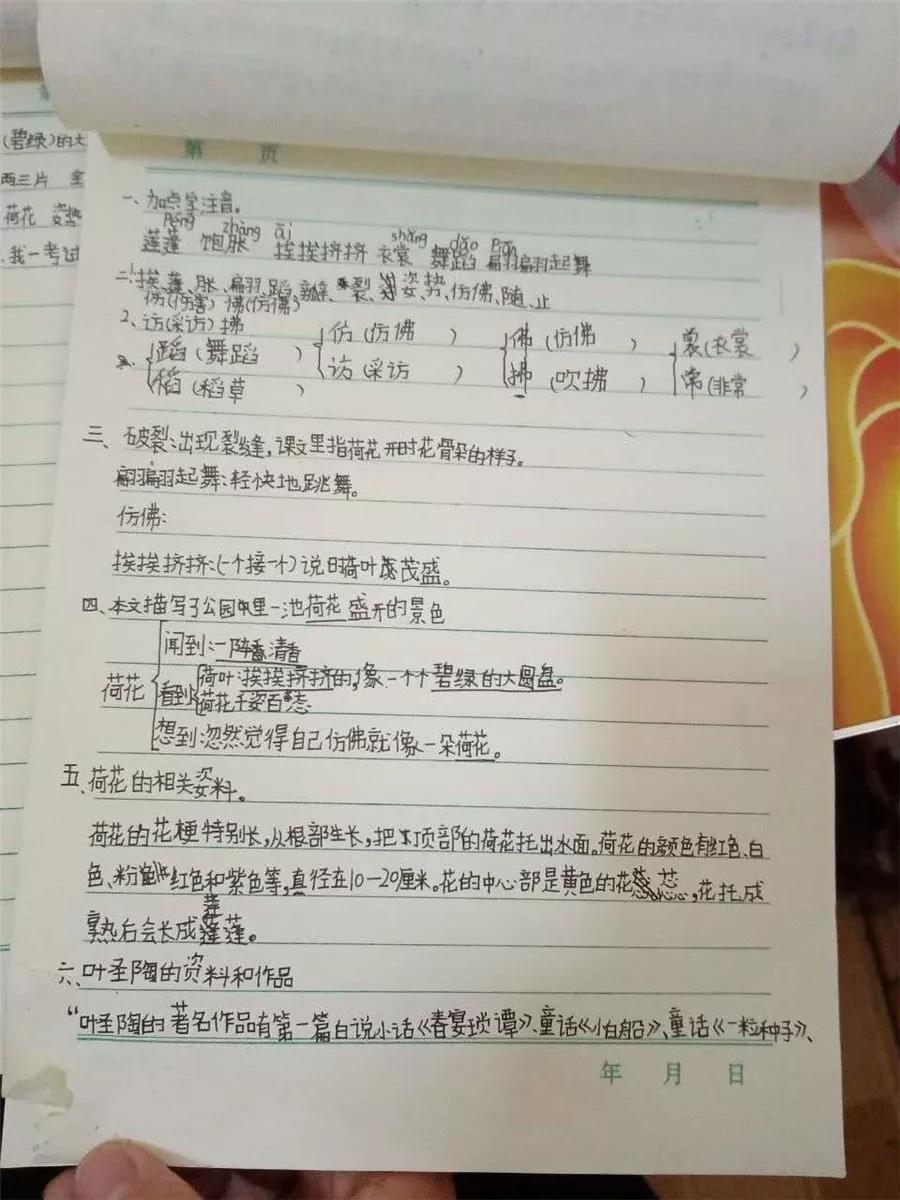 (碧绿)的大
两三片 全
荷花 姿势
我一考试
第 页
一、加点字注音。
péng zhàng āi shāng dǎo piān
莲蓬 饱胀 挨挨挤挤 衣裳 舞蹈 翩翩起舞
二、1.挨、蓬、胀、翩、蹈、瓣、裂、姿势、仿佛、随、止
伤(伤害) 佛(仿佛)
2、访(采访) 拂
蹈(舞蹈 ) 仿(仿佛 ) 佛(仿佛 ) 裳(衣裳 )
稻(稻草 ) 访(采访 ) 拂(吹拂 ) 常(非常 )
三、破裂:出现裂缝,课文里指荷花开时花骨朵的样子。
翩翩起舞:轻快地跳舞。
仿佛:
挨挨挤挤:(一个接一个)说明荷叶茂盛。
四、本文描写了公园里一池荷花盛开的景色
闻到:一阵清香
荷花 看到 荷叶:挨挨挤挤的,像一个个碧绿的大圆盘。
荷花千姿百态
想到:忽然觉得自己仿佛就像一朵荷花。
五、荷花的相关资料。
荷花的花梗特别长,从根部生长,把顶部的荷花托出水面。荷花的颜色有红色、白
色、粉红色和紫色等,直径在10—20厘米。花的中心部是黄色的花蕊,花托成
熟后会长成莲蓬。
六、叶圣陶的资料和作品
“叶圣陶的著名作品有第一篇白说小话《春宴琐谭》、童话《小白船》、童话《一粒种子》、
年 月 日